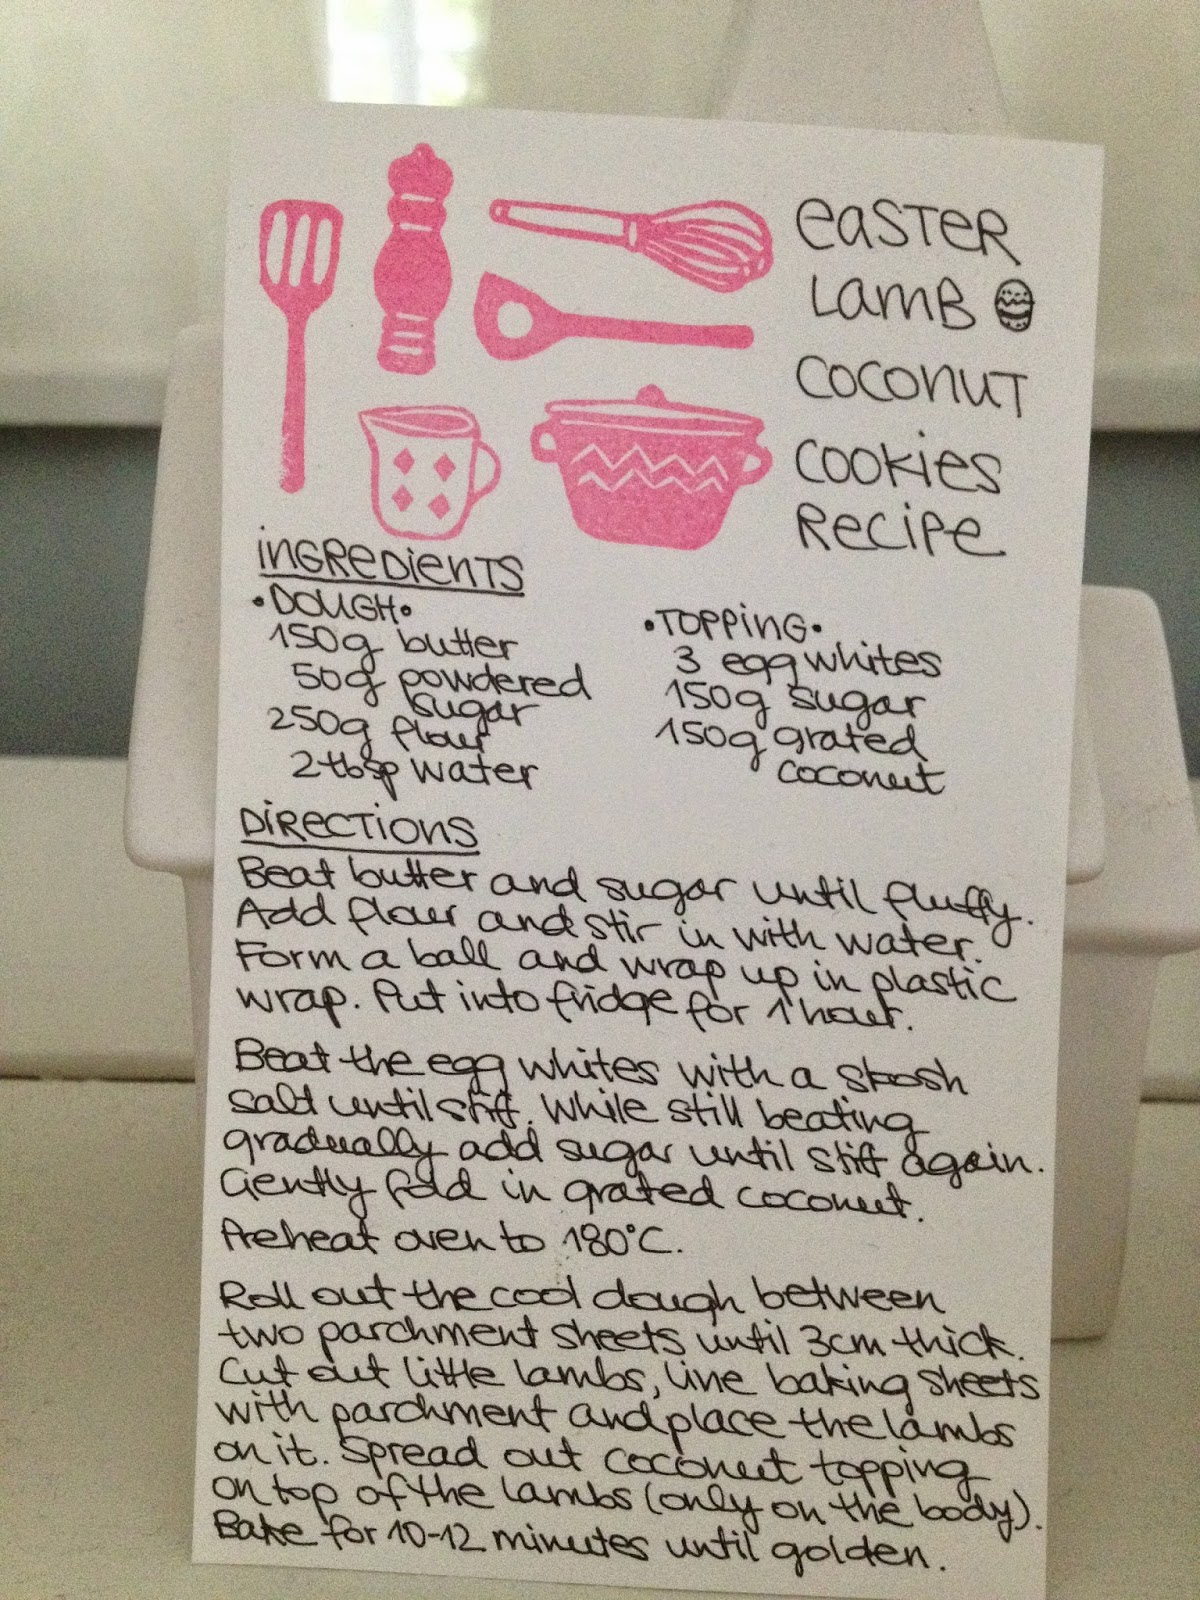 EASTER
LAMB
COCONUT
COOKIES
RECIPE
INGREDIENTS
•DOUGH•
150g butter
50g powdered
sugar
250g flour
2 tbsp water
•TOPPING•
3 egg whites
150g sugar
150g grated
coconut
DIRECTIONS
Beat butter and sugar until fluffy.
Add flour and stir in with water.
Form a ball and wrap up in plastic
wrap. Put into fridge for 1 hour.
Beat the egg whites with a skosh
salt until stiff. While still beating
gradually add sugar until stiff again.
Gently fold in grated coconut.
Preheat oven to 180°C.
Roll out the cool dough between
two parchment sheets until 3cm thick.
Cut out little lambs, line baking sheets
with parchment and place the lambs
on it. Spread out coconut topping
on top of the lambs (only on the body).
Bake for 10-12 minutes until golden.